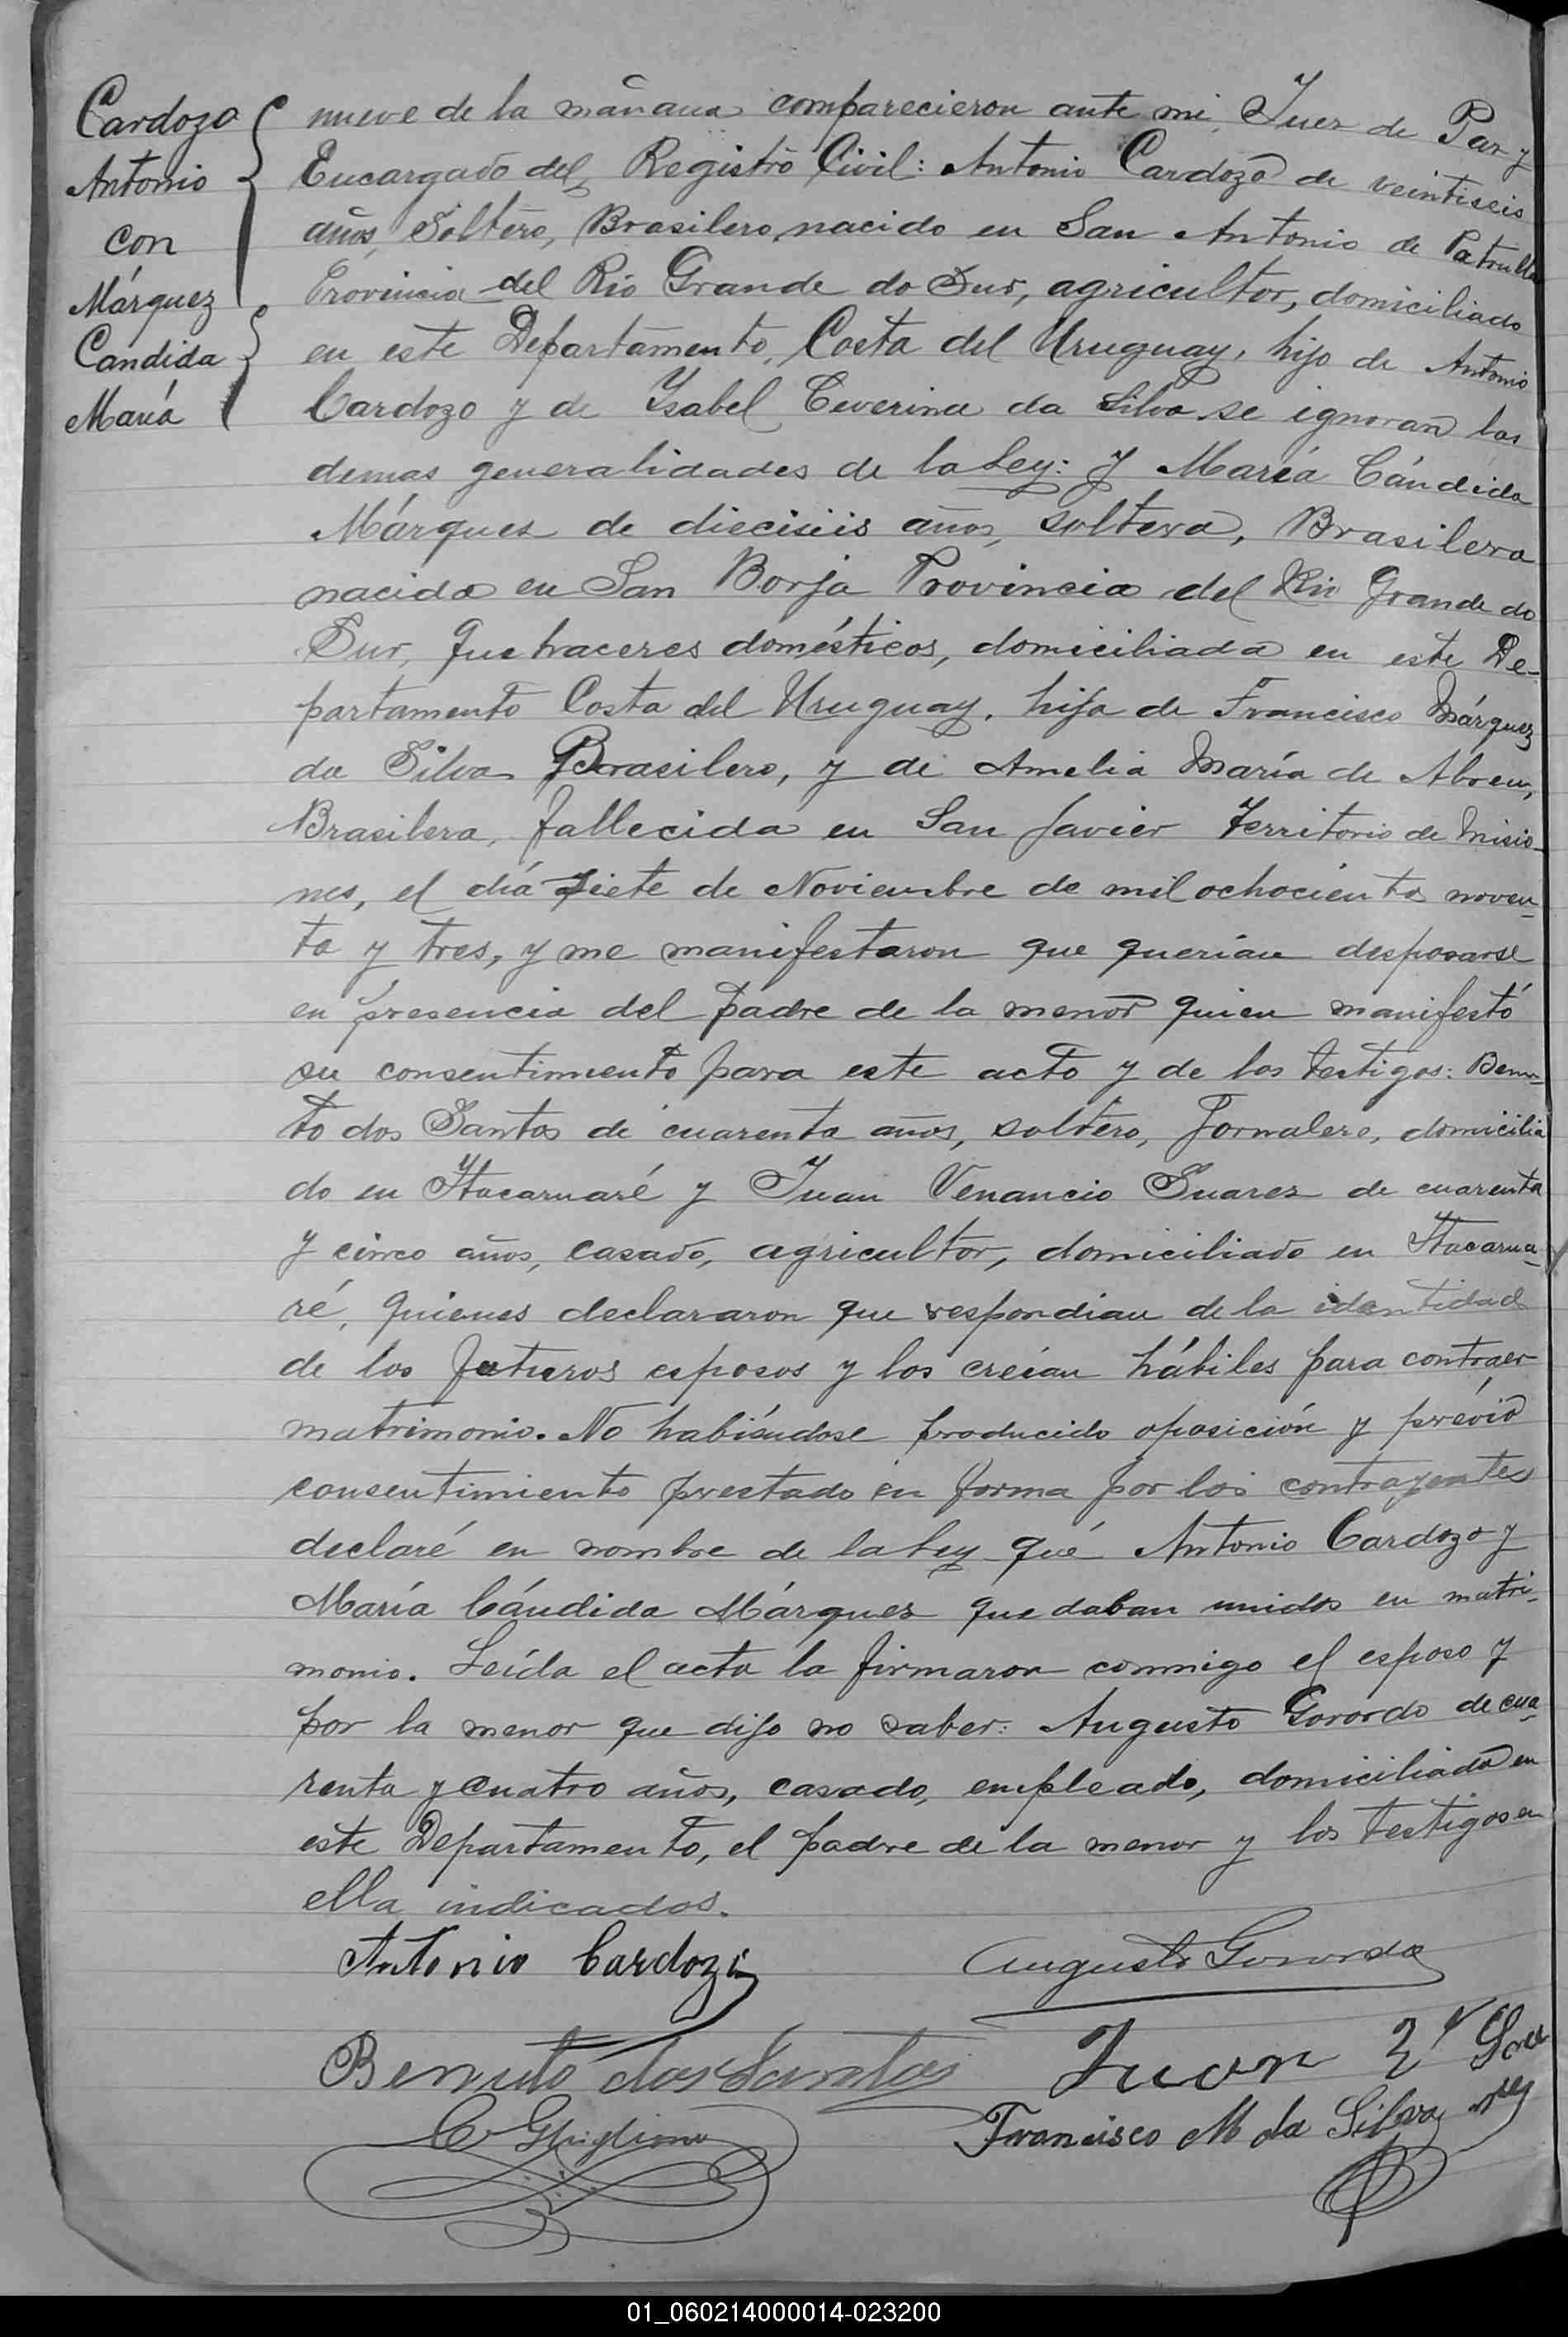 Cardozo
Antonio
con
Márquez
Candida
María
nueve de la mañana comparecieron ante mi Juez de Paz y
Encargado del Registro Civil: Antonio Cardozo de veintiseis
años, Soltero, Brasilero, nacido en San Antonio de Patrulla
Provincia del Rio Grande do Sur, agricultor, domiciliado
en este Departamento, Costa del Uruguay, hijo de Antonio
Cardozo y de Ysabel Ceverina da Silva se ignoran las
demas generalidades de la Ley: y María Cándida
Márquez de dieciseis años, soltera, Brasilera
nacida en San Borja Provincia del Rio Grande do
Sur, quehaceres domésticos, domiciliada en este De-
partamento Costa del Uruguay, hija de Francisco Márquez
da Silva Brasilero, y de Amelia María de Abreu,
Brasilera, fallecida en San Javier Territorio de Misio-
nes, el día siete de Noviembre de mil ochocientos noven-
ta y tres, y me manifestaron que querian desposarse
en presencia del padre de la menor quien manifestó
su consentimiento para este acto y de los testigos: Benu-
to dos Santos de cuarenta años, soltero, Jornalero, domicilia
do en Itacaruaré y Juan Venancio Suarez de cuarenta
y cinco años, casado, agricultor, domiciliado en Itacarua-
ré, quienes declararon que respondian de la identidad
de los futuros esposos y los creían hábiles para contraer
matrimonio. No habiéndose producido oposición y prévio
consentimiento prestado en forma por los contrayentes
declaré en nombre de la Ley qué Antonio Cardozo y
María Cándida Márquez quedaban unidos en matri-
monio. Leída el acta la firmaron conmigo el esposo y
por la menor que dijo no saber: Augusto Gorordo de cua-
renta y cuatro años, casado, empleado, domiciliado en
este Departamento, el padre de la menor y los testigos en
ella indicados.
Antonio Cardozo
Augusto Gorordo
Benuto dos Santos
Juan V Soarez
C Ghiglione
Francisco M da Silva
01_060214000014-023200